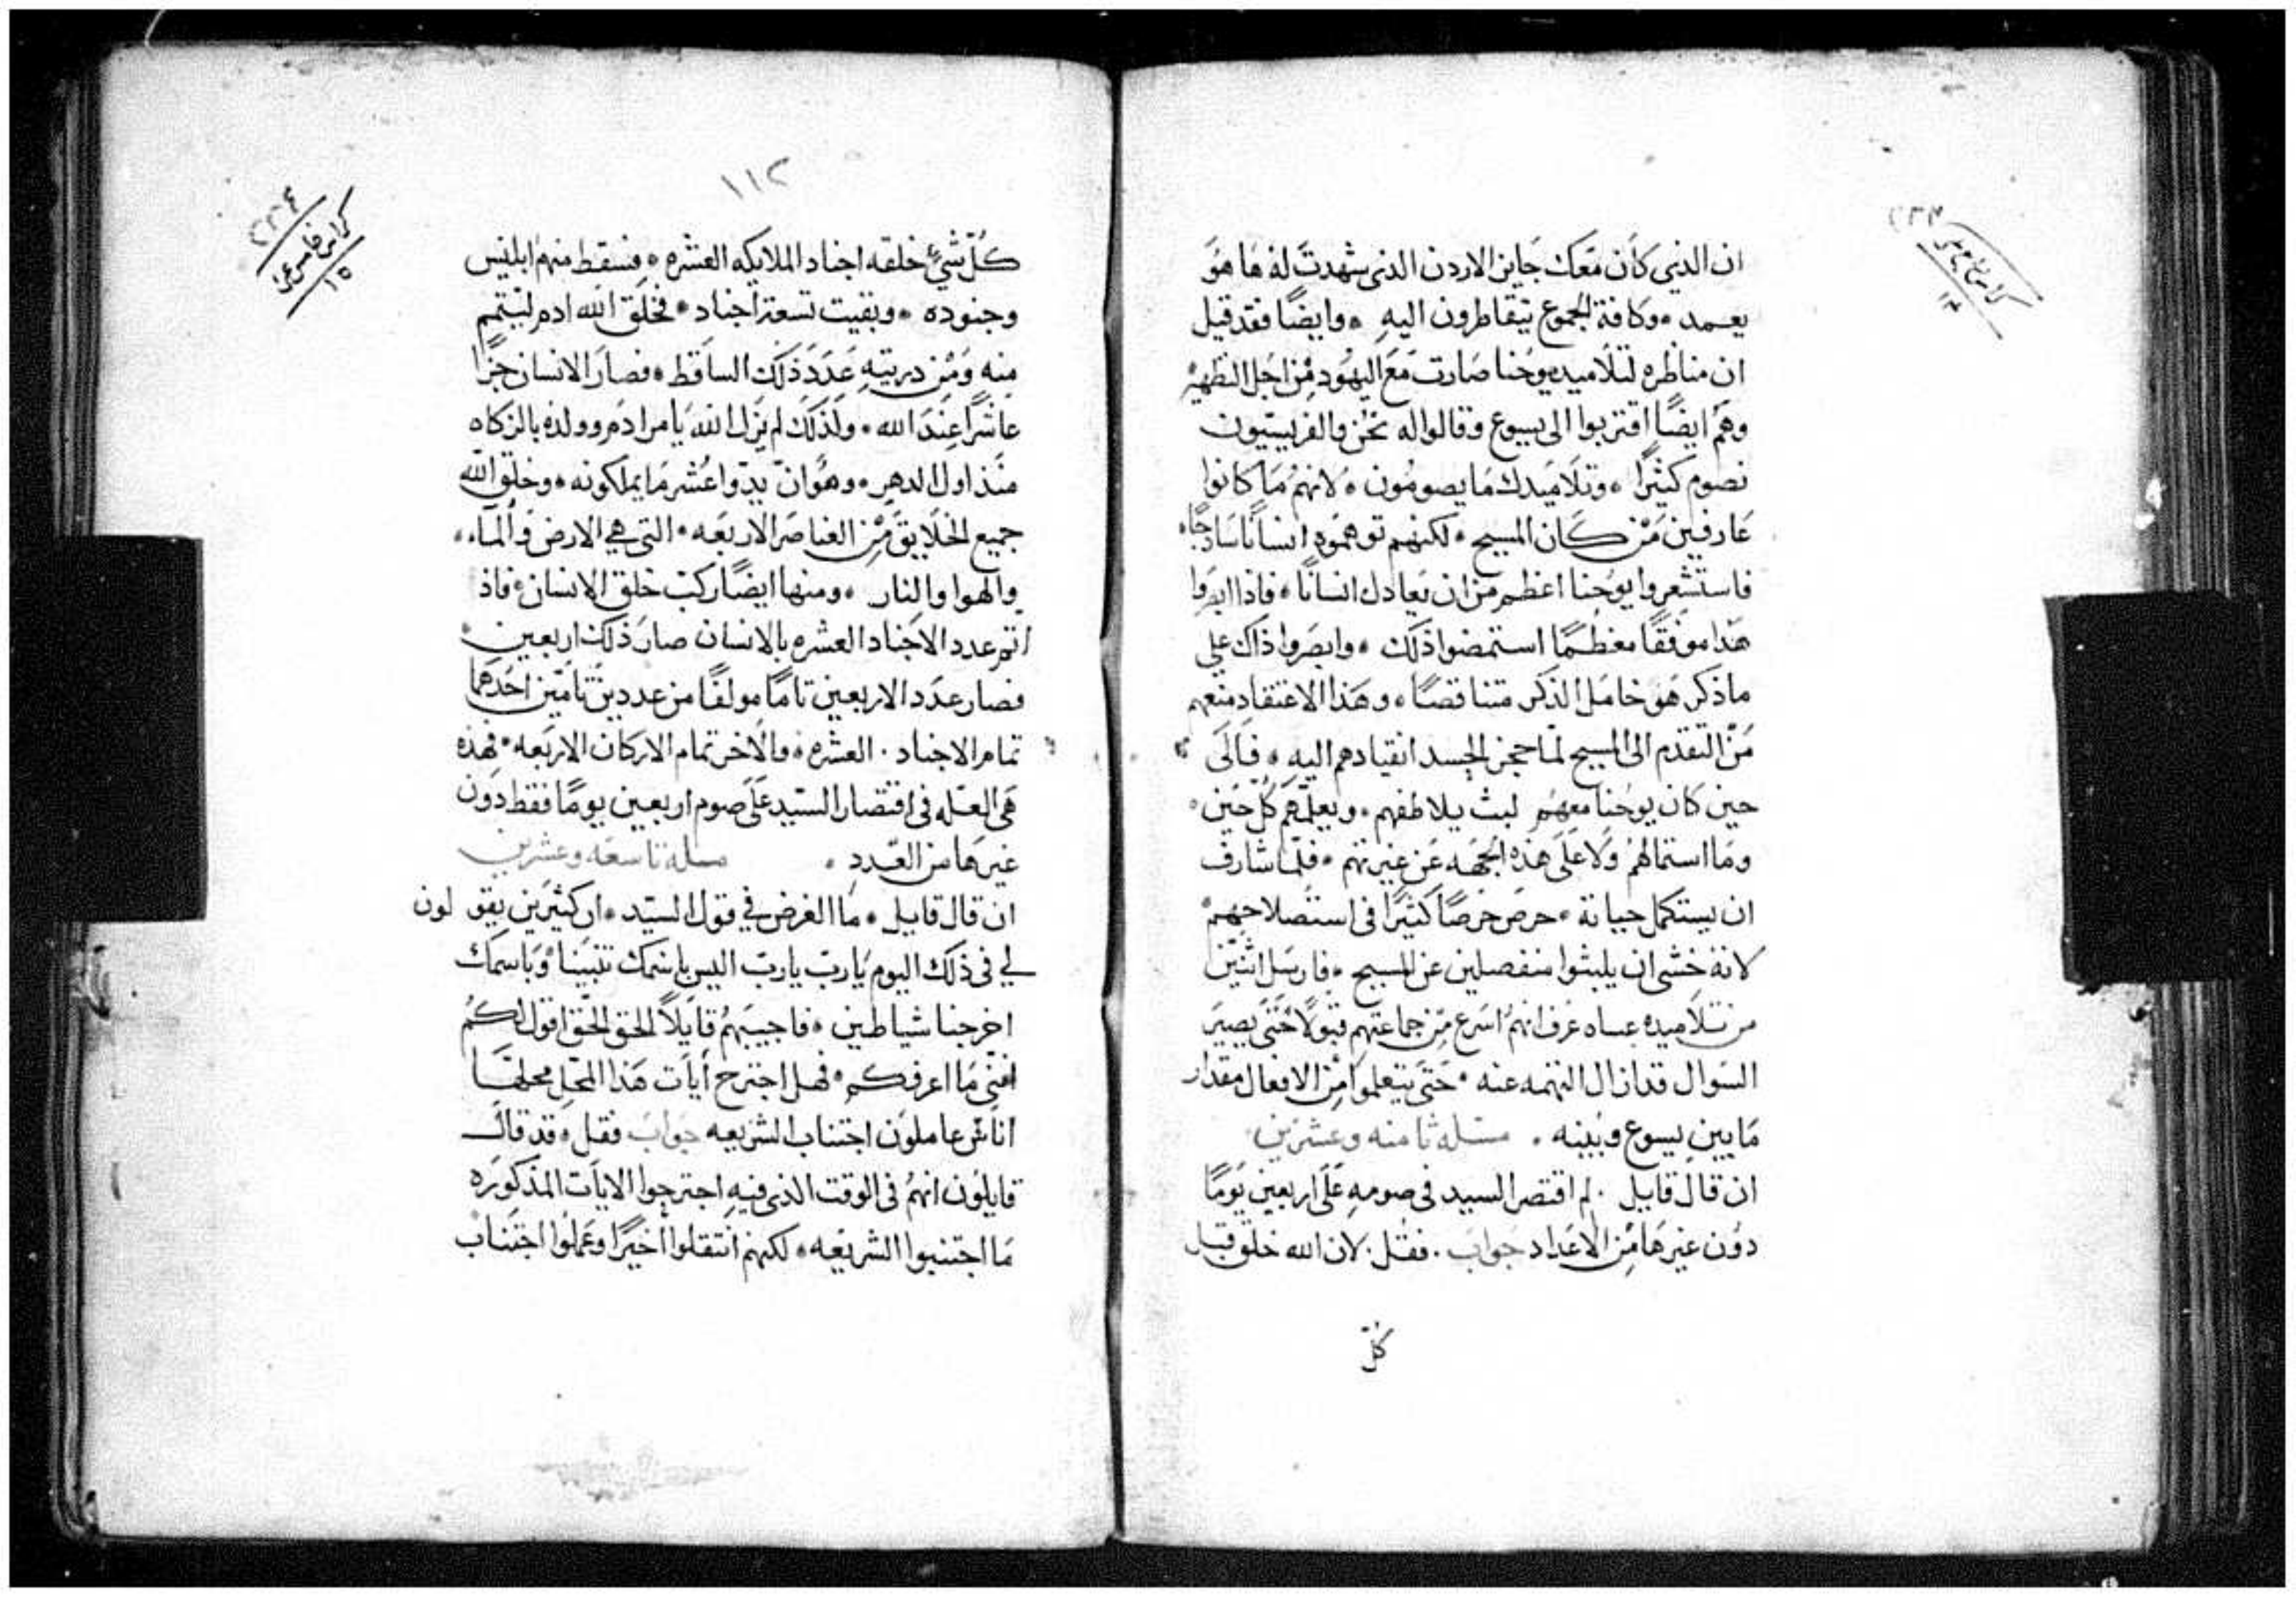 ان الذي كان معك جايز الاردن الذي شهدت له ها هو
يعمد وكافة الجموع يتقاطرون اليه وايضًا فقد قيل
ان مناظره لتلاميد يوحنا صارت مع اليهود من اجل التطهير
وهم ايضًا اقتربوا الى يسوع وقالوا له نحن والفريسيون
نصوم كثيرًا وتلاميدك ما يصومون لانهم ما كانوا
عارفين من كان المسيح لكنهم توهموه انسانًا ساذجًا
فاستشعروا يوحنا اعظم من ان يعادل انسانًا فاذا ابصروا
هذا موفقًا معظمًا استمضوا ذلك وابصروا ذاك علي
ما ذكر هو خامل الذكر متناقصًا وهذا الاعتقاد منعهم
من التقدم الى المسيح لما حجز الجسد انقيادهم اليه فالى
حين كان يوحنا معهم لبث يلاطفهم ويعلمهم كل حين
وما استمالهم ولا على هذه الجهه عن غيرتهم فلما شارف
ان يستكمل حياته حرص حرصًا كثيرًا في استصلاحهم
لانه خشى ان يلبثوا منفصلين عن المسيح فارسل اثنين
من تلاميده عساه عرف انهم اسرع من جماعتهم قبولًا حتى يصير
السوال قد ازال التهمه عنه حتى يتعلموا من الافعال مقدار
ما بين يسوع وبينه مسله ثامنه وعشرين
ان قال قايل لم اقتصر السيد في صومه على اربعين يومًا
دون غيرها من الاعداد جواب فقل لان الله خلق قبل
كل
١١٢
كراس خامس عشر
١٥
كل شيء خلقه اجناد الملايكه العشره فسقط منهم ابليس
وجنوده وبقيت تسعة اجناد فخلق الله ادم ليتمم
منه ومن دريته عدد ذلك الساقط فصار الانسان جزًا
عاشرًا عند الله ولذلك لم يزل الله يامر ادم وولده بالزكاه
منذ اول الدهر وهو ان يدوا عشر ما يملكونه وخلق الله
جميع الخلايق من العناصر الاربعه التي هي الارض والماء
والهوا والنار ومنها ايضًا ركب خلق الانسان فاذ
اتم عدد الاجناد العشره بالانسان صار ذلك اربعين
فصار عدد الاربعين تامًا مولفًا من عددين تامين احدهما
تمام الاجناد العشره والاخر تمام الاركان الاربعه فهذه
هي العله في اقتصار السيد على صوم اربعين يومًا فقط دون
غيرها من العدد مسله تاسعه وعشرين
ان قال قايل ما الغرض في قول السيد ان كثيرين يقولون
لي في ذلك اليوم يا رب يا رب اليس باسمك تنبينا وباسمك
اخرجنا شياطين فاجيبهم قايلًا الحق الحق اقول لكم
انني ما اعرفكم فهل اجترح ايات هذا المحل محلها
اناس عاملون اجتناب الشريعه جواب فقل قد قال
قايلون انهم في الوقت الذي فيه اجترحوا الايات المذكوره
ما اجتنبوا الشريعه لكنهم انتقلوا اخيرًا وعملوا اجتناب